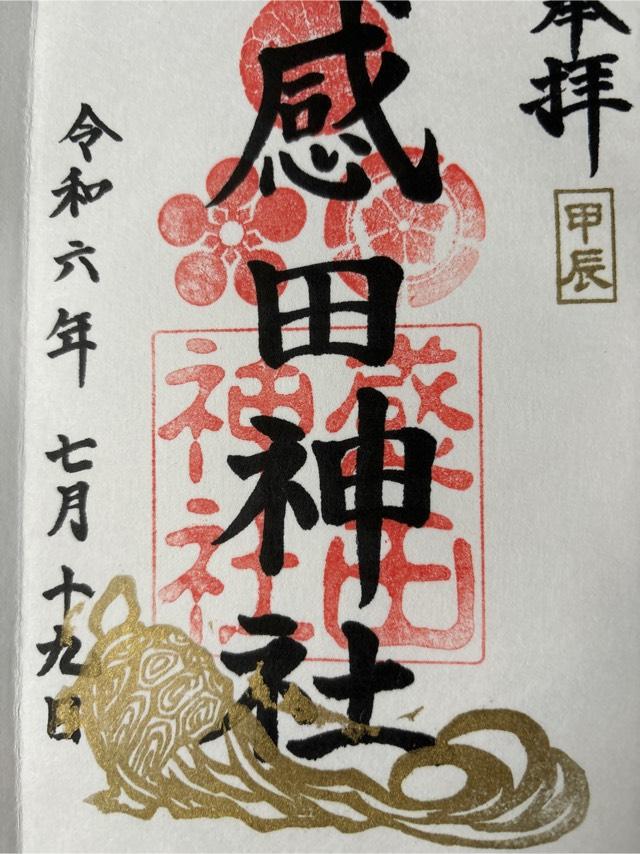 奉拝
甲辰
感田神社
感田
神社
令和六年 七月十九日